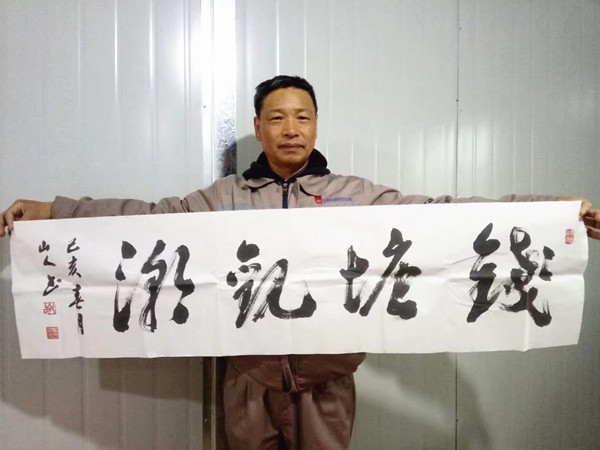 錢塘觀潮
己亥春月
山人書